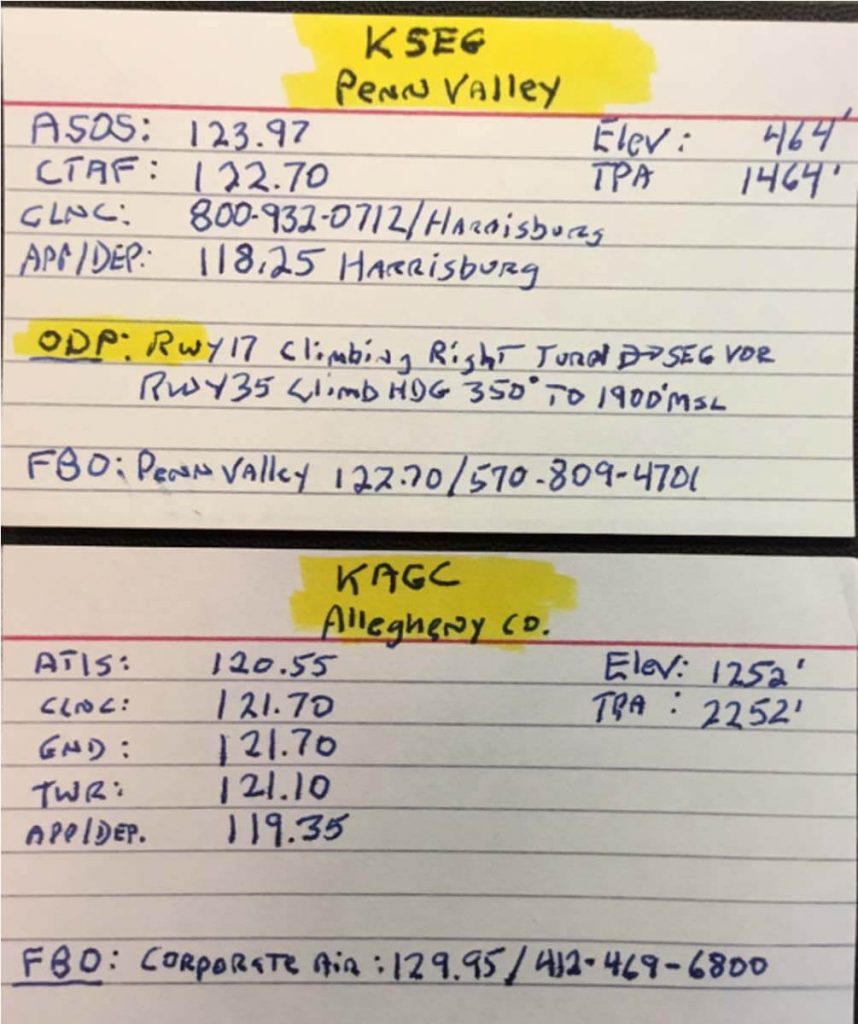 KSEG
Penn Valley
ASOS: 123.97 Elev: 464'
CTAF: 122.70 TPA 1464'
CLNC: 800-932-0712/Harrisburg
APP/DEP: 118.25 Harrisburg
ODP: RWY17 Climbing Right Turn D→ SEG VOR
RWY35 Climb HDG 350° TO 1900' MSL
FBO: Penn Valley 122.70/570-809-4701
KAGC
Allegheny CO.
ATIS: 120.55 Elev: 1252'
CLNC: 121.70 TPA: 2252'
GND: 121.70
TWR: 121.10
APP/DEP. 119.35
FBO: Corporate Air: 129.95/412-469-6800